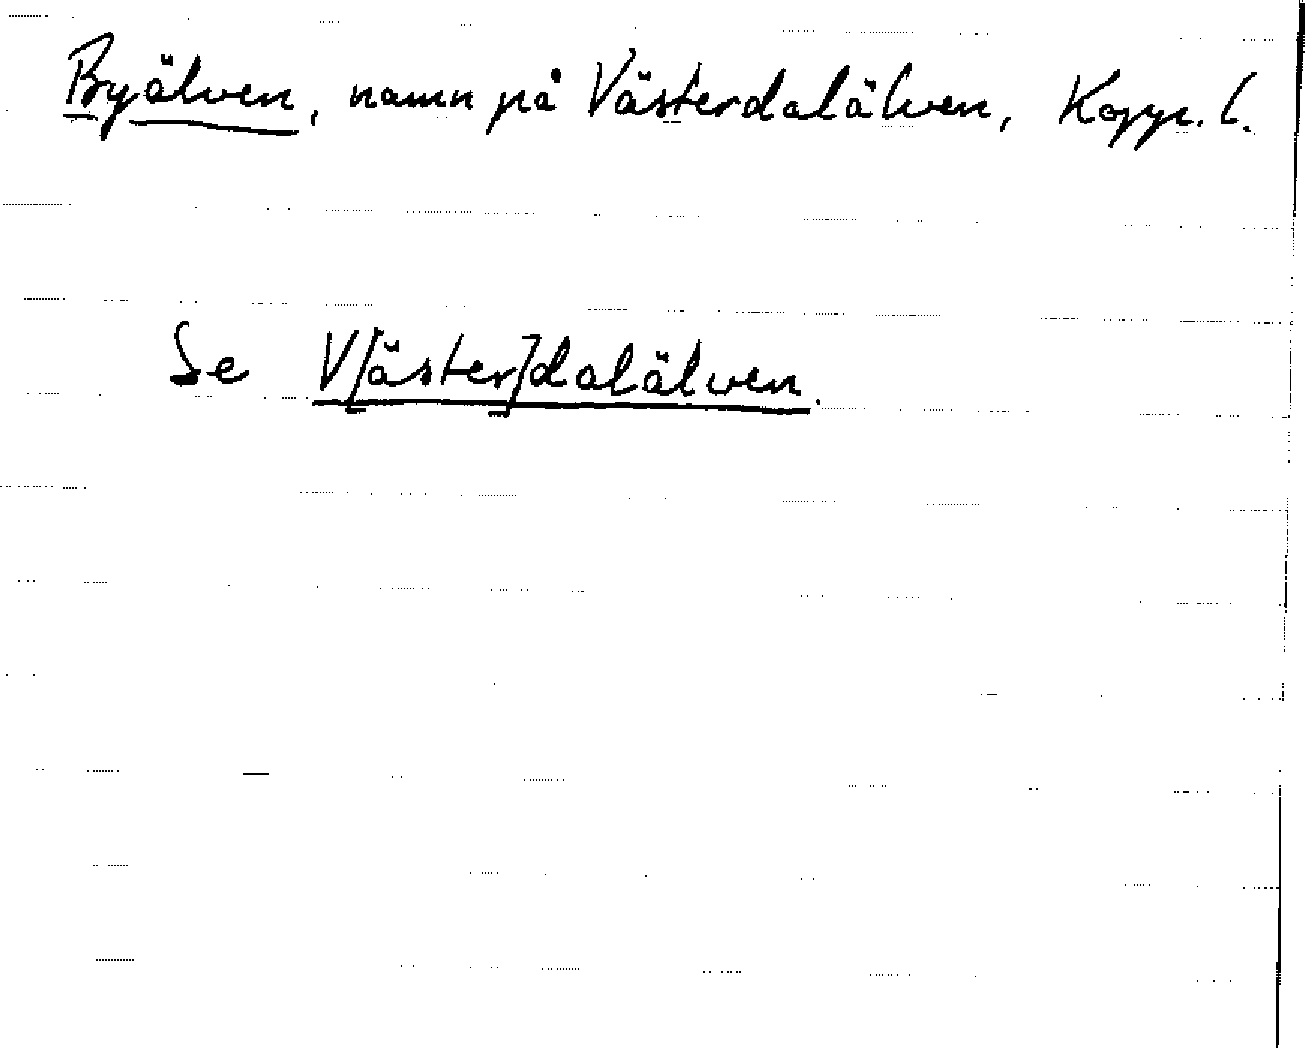 Byälven, namn på Västerdalälven, Kopp. l.
Se V[äster]dalälven.